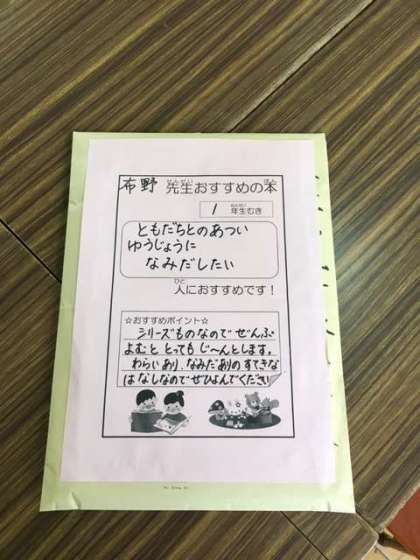 布野 先生おすすめの本
1 年生むき
ともだちとのあつい
ゆうじょうに
なみだしたい
人におすすめです!
☆おすすめポイント☆
シリーズものなので ぜんぶ
よむと とっても じ〜んとします。
わらいあり、なみだありの すてきな
はなしなので ぜひよんでください